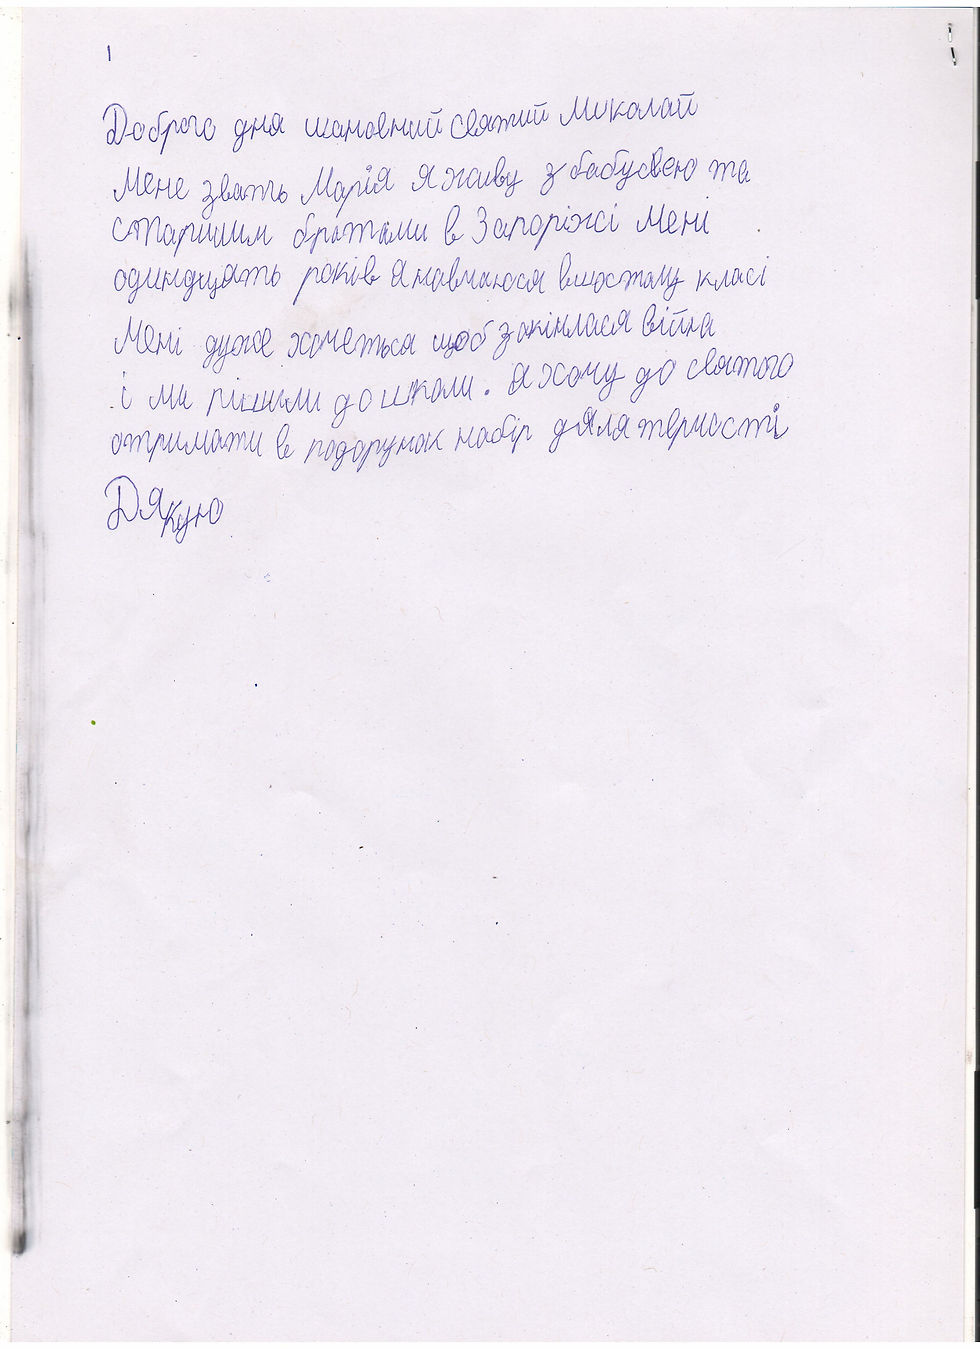 1
Доброго дня шановний святий Миколай
Мене звать Марія я живу з бабусвею та
старшим братами в Запоріжжі Мені
одинадцять років я навчаюся вшостому класі
Мені дуже хочеться щоб закінчлася війна
і ми пішли до школи. Я хочу до святого
отримати в подарунок набір для творчості
Дякую